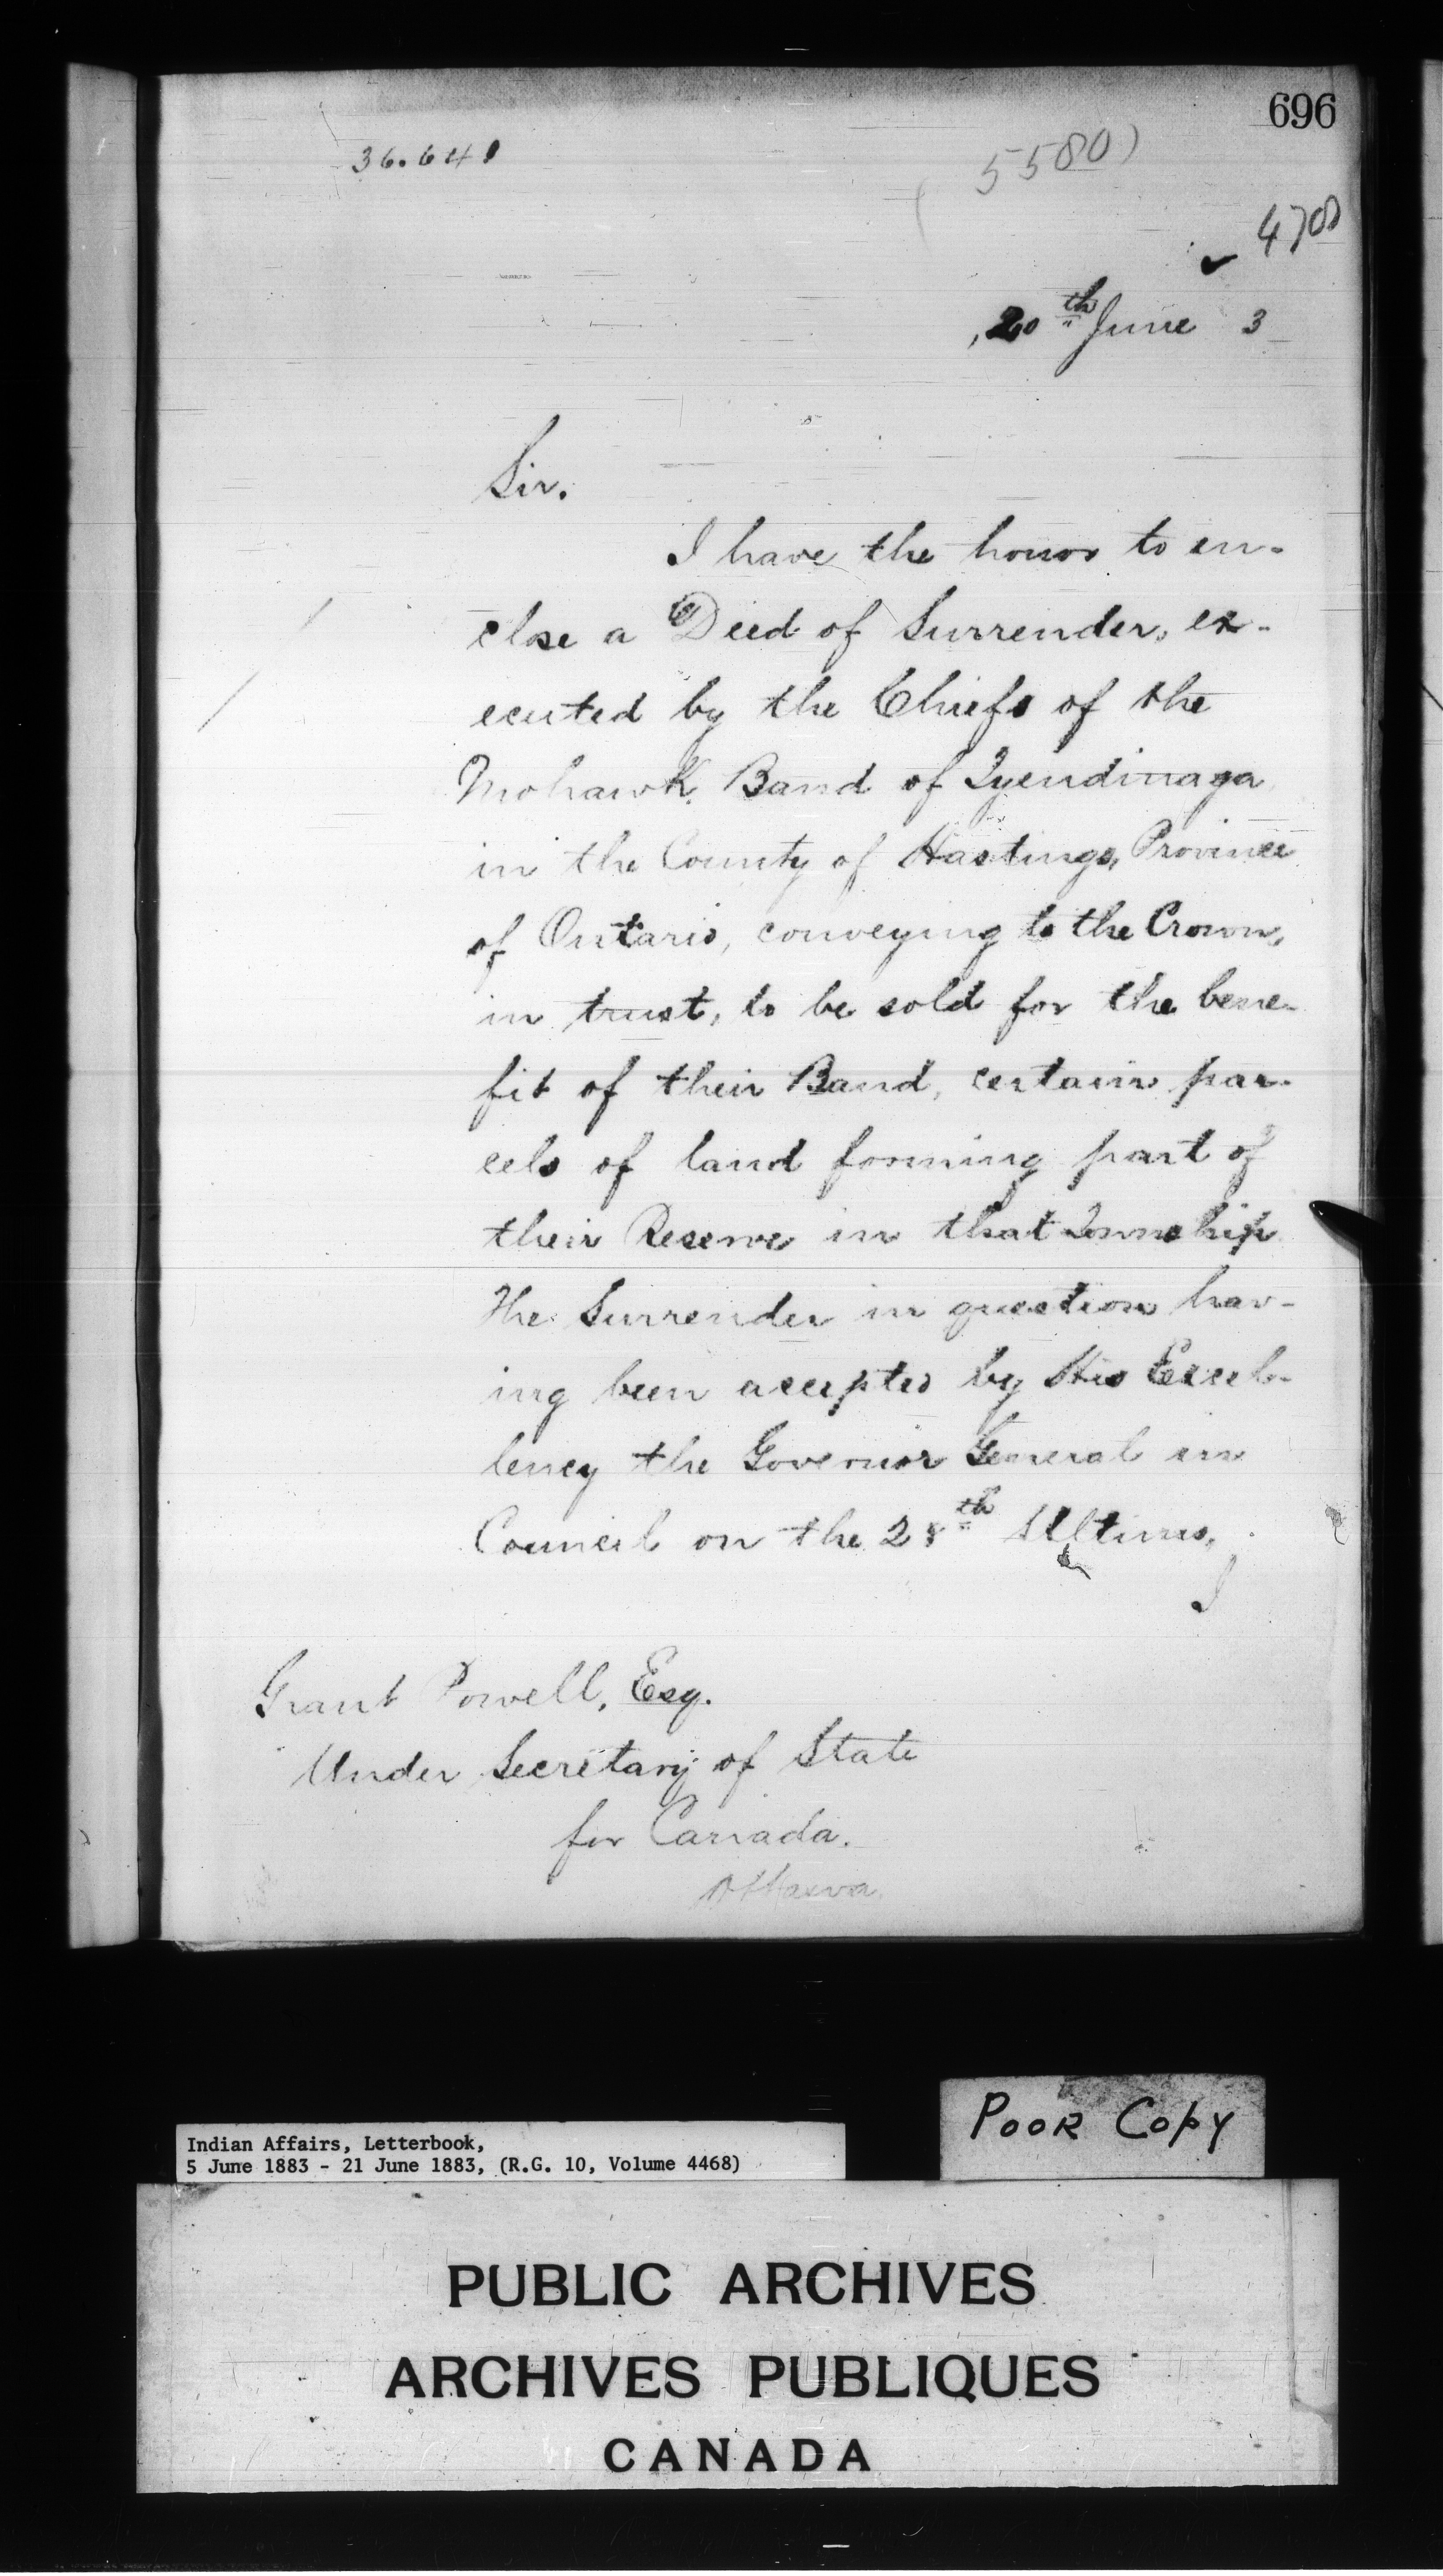 696
36.641
(5580)
4708
20th June 3
Sir.
I have the honor to en-
close a Deed of Surrender, ex-
ecuted by the Chiefs of the
Mohawk Band of Tyendinaga
in the County of Hastings, Province
of Ontario, conveying to the Crown,
in trust, to be sold for the bene-
fit of their Band, certain par-
cels of land forming part of
their Reserve in that Township
The Surrender in question hav-
ing been accepted by His Excel-
lency the Governor General in
Council on the 28th Ultimo,
I
Grant Powell, Esq.
Under Secretary of State
for Canada.
Ottawa
Poor Copy
Indian Affairs, Letterbook,
5 June 1883 - 21 June 1883, (R.G. 10, Volume 4468)
PUBLIC ARCHIVES
ARCHIVES PUBLIQUES
CANADA